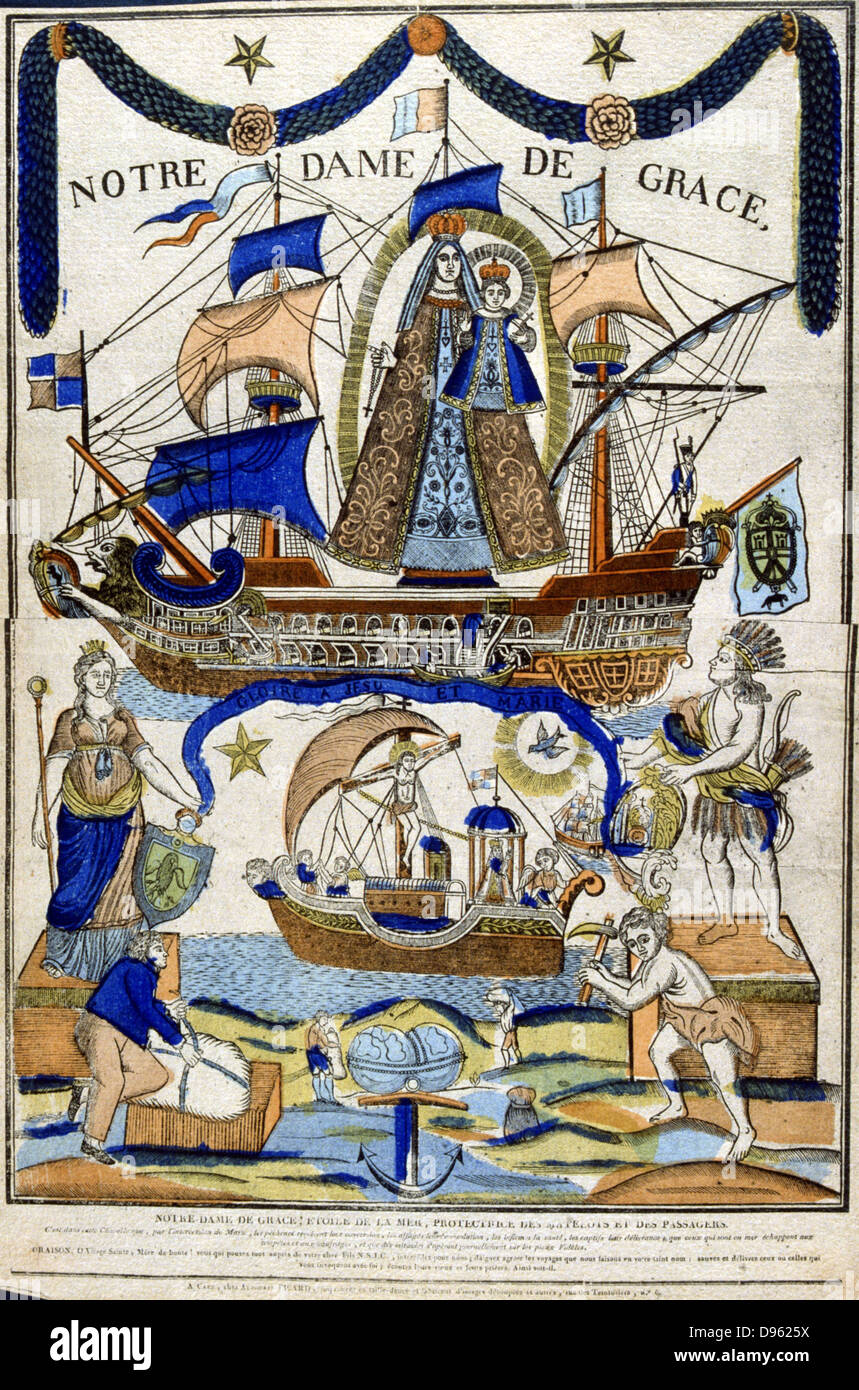 NOTRE DAME DE GRACE,
GLOIRE A JESU ET MARIE
NOTRE-DAME DE GRACE! ETOILE DE LA MER, PROTECTRICE DES MATELOTS ET DES PASSAGERS.
C'est dans cette Chapelle que, par l'intercession de Marie, les pécheurs reçoivent leur conversion, les affligés leur consolation, les infirmes la santé, les captifs leur délivrance, que ceux qui sont en mer échappent aux
tempêtes et aux naufrages, et que des miracles s'opèrent journellement sur les pieux Fidèles.
ORAISON. O Vierge Sainte, Mère de bonté! vous qui pouvez tout auprès de votre cher Fils N.S.J.C., intercédez pour nous; daignez agréer les voyages que nous faisons en votre saint nom; sauvez et délivrez ceux ou celles qui
vous invoquent avec foi; écoutez leurs vœux et leurs prières. Ainsi soit-il.
A CAEN, chez PICARD, imprimeur en taille-douce et fabricant d'images découpées et autres, rue des Teinturiers, n.º
alamy
alamy
Image ID: D9625X
www.alamy.com